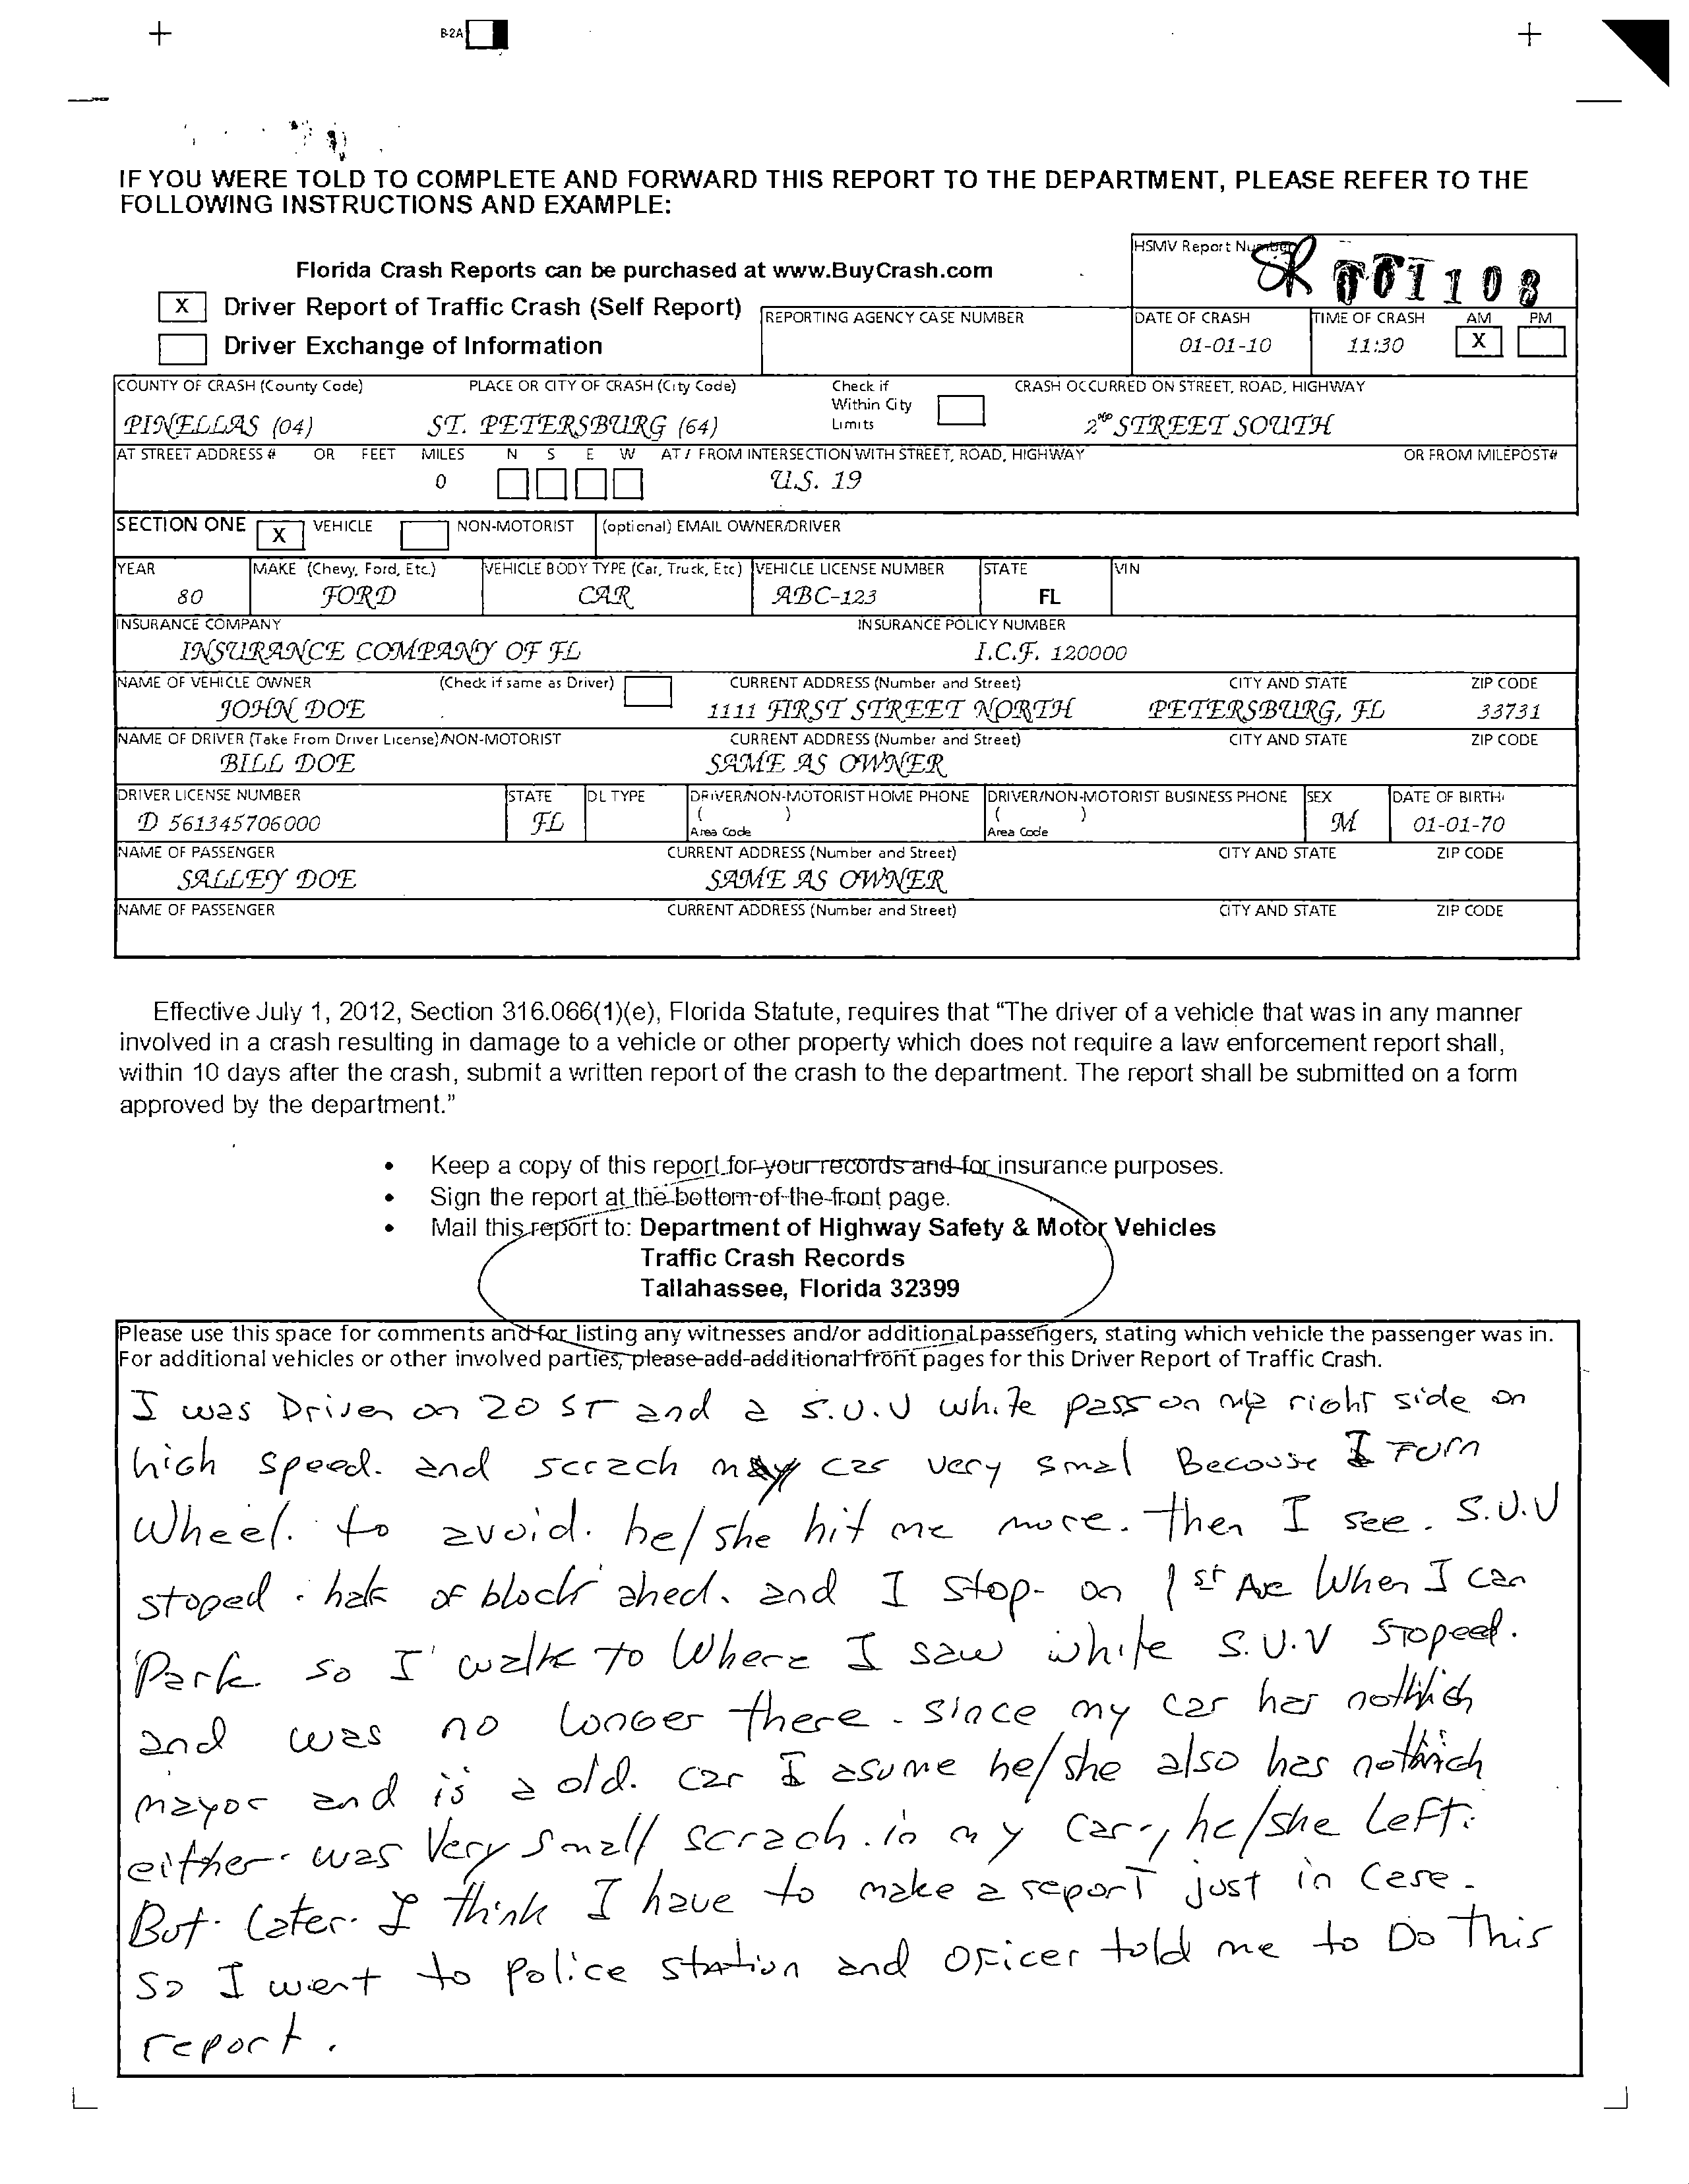 B-2A
IF YOU WERE TOLD TO COMPLETE AND FORWARD THIS REPORT TO THE DEPARTMENT, PLEASE REFER TO THE
FOLLOWING INSTRUCTIONS AND EXAMPLE:
HSMV Report Number
001108
Florida Crash Reports can be purchased at www.BuyCrash.com
X Driver Report of Traffic Crash (Self Report)
Driver Exchange of Information
REPORTING AGENCY CASE NUMBER
DATE OF CRASH TIME OF CRASH AM PM
01-01-10 11:30 X
COUNTY OF CRASH (County Code) PLACE OR CITY OF CRASH (City Code) Check if Within City Limits CRASH OCCURRED ON STREET, ROAD, HIGHWAY
PINELLAS (04) ST. PETERSBURG (64) 2ND STREET SOUTH
AT STREET ADDRESS # OR FEET MILES N S E W AT / FROM INTERSECTION WITH STREET, ROAD, HIGHWAY OR FROM MILEPOST#
0 U.S. 19
SECTION ONE X VEHICLE NON-MOTORIST (optional) EMAIL OWNER/DRIVER
YEAR MAKE (Chevy, Ford, Etc.) VEHICLE BODY TYPE (Car, Truck, Etc) VEHICLE LICENSE NUMBER STATE VIN
80 FORD CAR ABC-123 FL
INSURANCE COMPANY INSURANCE POLICY NUMBER
INSURANCE COMPANY OF FL I.C.F. 120000
NAME OF VEHICLE OWNER (Check if same as Driver) CURRENT ADDRESS (Number and Street) CITY AND STATE ZIP CODE
JOHN DOE 1111 FIRST STREET NORTH PETERSBURG, FL 33731
NAME OF DRIVER (Take From Driver License)/NON-MOTORIST CURRENT ADDRESS (Number and Street) CITY AND STATE ZIP CODE
BILL DOE SAME AS OWNER
DRIVER LICENSE NUMBER STATE DL TYPE DRIVER/NON-MOTORIST HOME PHONE DRIVER/NON-MOTORIST BUSINESS PHONE SEX DATE OF BIRTH
D 561345706000 FL ( ) Area Code ( ) Area Code M 01-01-70
NAME OF PASSENGER CURRENT ADDRESS (Number and Street) CITY AND STATE ZIP CODE
SALLEY DOE SAME AS OWNER
NAME OF PASSENGER CURRENT ADDRESS (Number and Street) CITY AND STATE ZIP CODE
Effective July 1, 2012, Section 316.066(1)(e), Florida Statute, requires that “The driver of a vehicle that was in any manner
involved in a crash resulting in damage to a vehicle or other property which does not require a law enforcement report shall,
within 10 days after the crash, submit a written report of the crash to the department. The report shall be submitted on a form
approved by the department.”
• Keep a copy of this report for your records and for insurance purposes.
• Sign the report at the bottom of the front page.
• Mail this report to: Department of Highway Safety & Motor Vehicles
Traffic Crash Records
Tallahassee, Florida 32399
Please use this space for comments and for listing any witnesses and/or additional passengers, stating which vehicle the passenger was in.
For additional vehicles or other involved parties, please add additional front pages for this Driver Report of Traffic Crash.
I was Driven on 20 ST and a S.U.V white pass on my right side on
high speed. and scrach my car very smal Becouse I Turn
Wheel. to avoid. he/she hit me more. then I see. S.U.V
stoped. half of block ahed. and I stop- on 1st Ave When I can
Park so I walk to Where I saw white S.U.V stoped.
and was no longer there. since my car has nothich
mayor and is a old. car I asume he/she also has nothich
either. was Very small scrach. in my car, he/she Left.
But. Later. I think I have to make a report just in case.
so I went to police station and oficer told me to Do This
report.